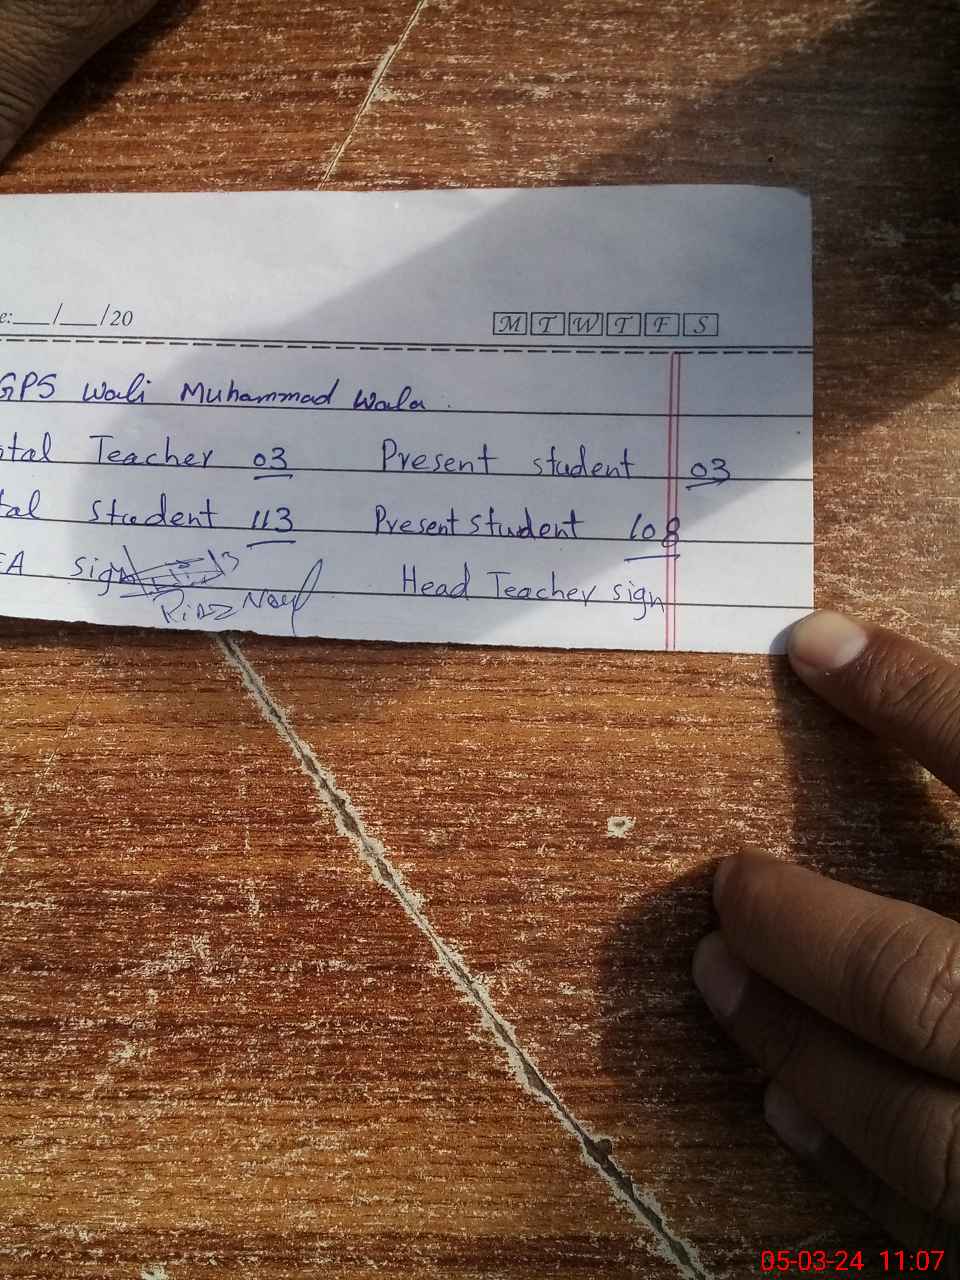 e:___/___/20 M T W T F S
GPS Wali Muhammad Wala.
tal Teacher 03 Present student 03
tal student 113 Present student 108
EA sign Head Teacher sign
Riaz
05-03-24 11:07